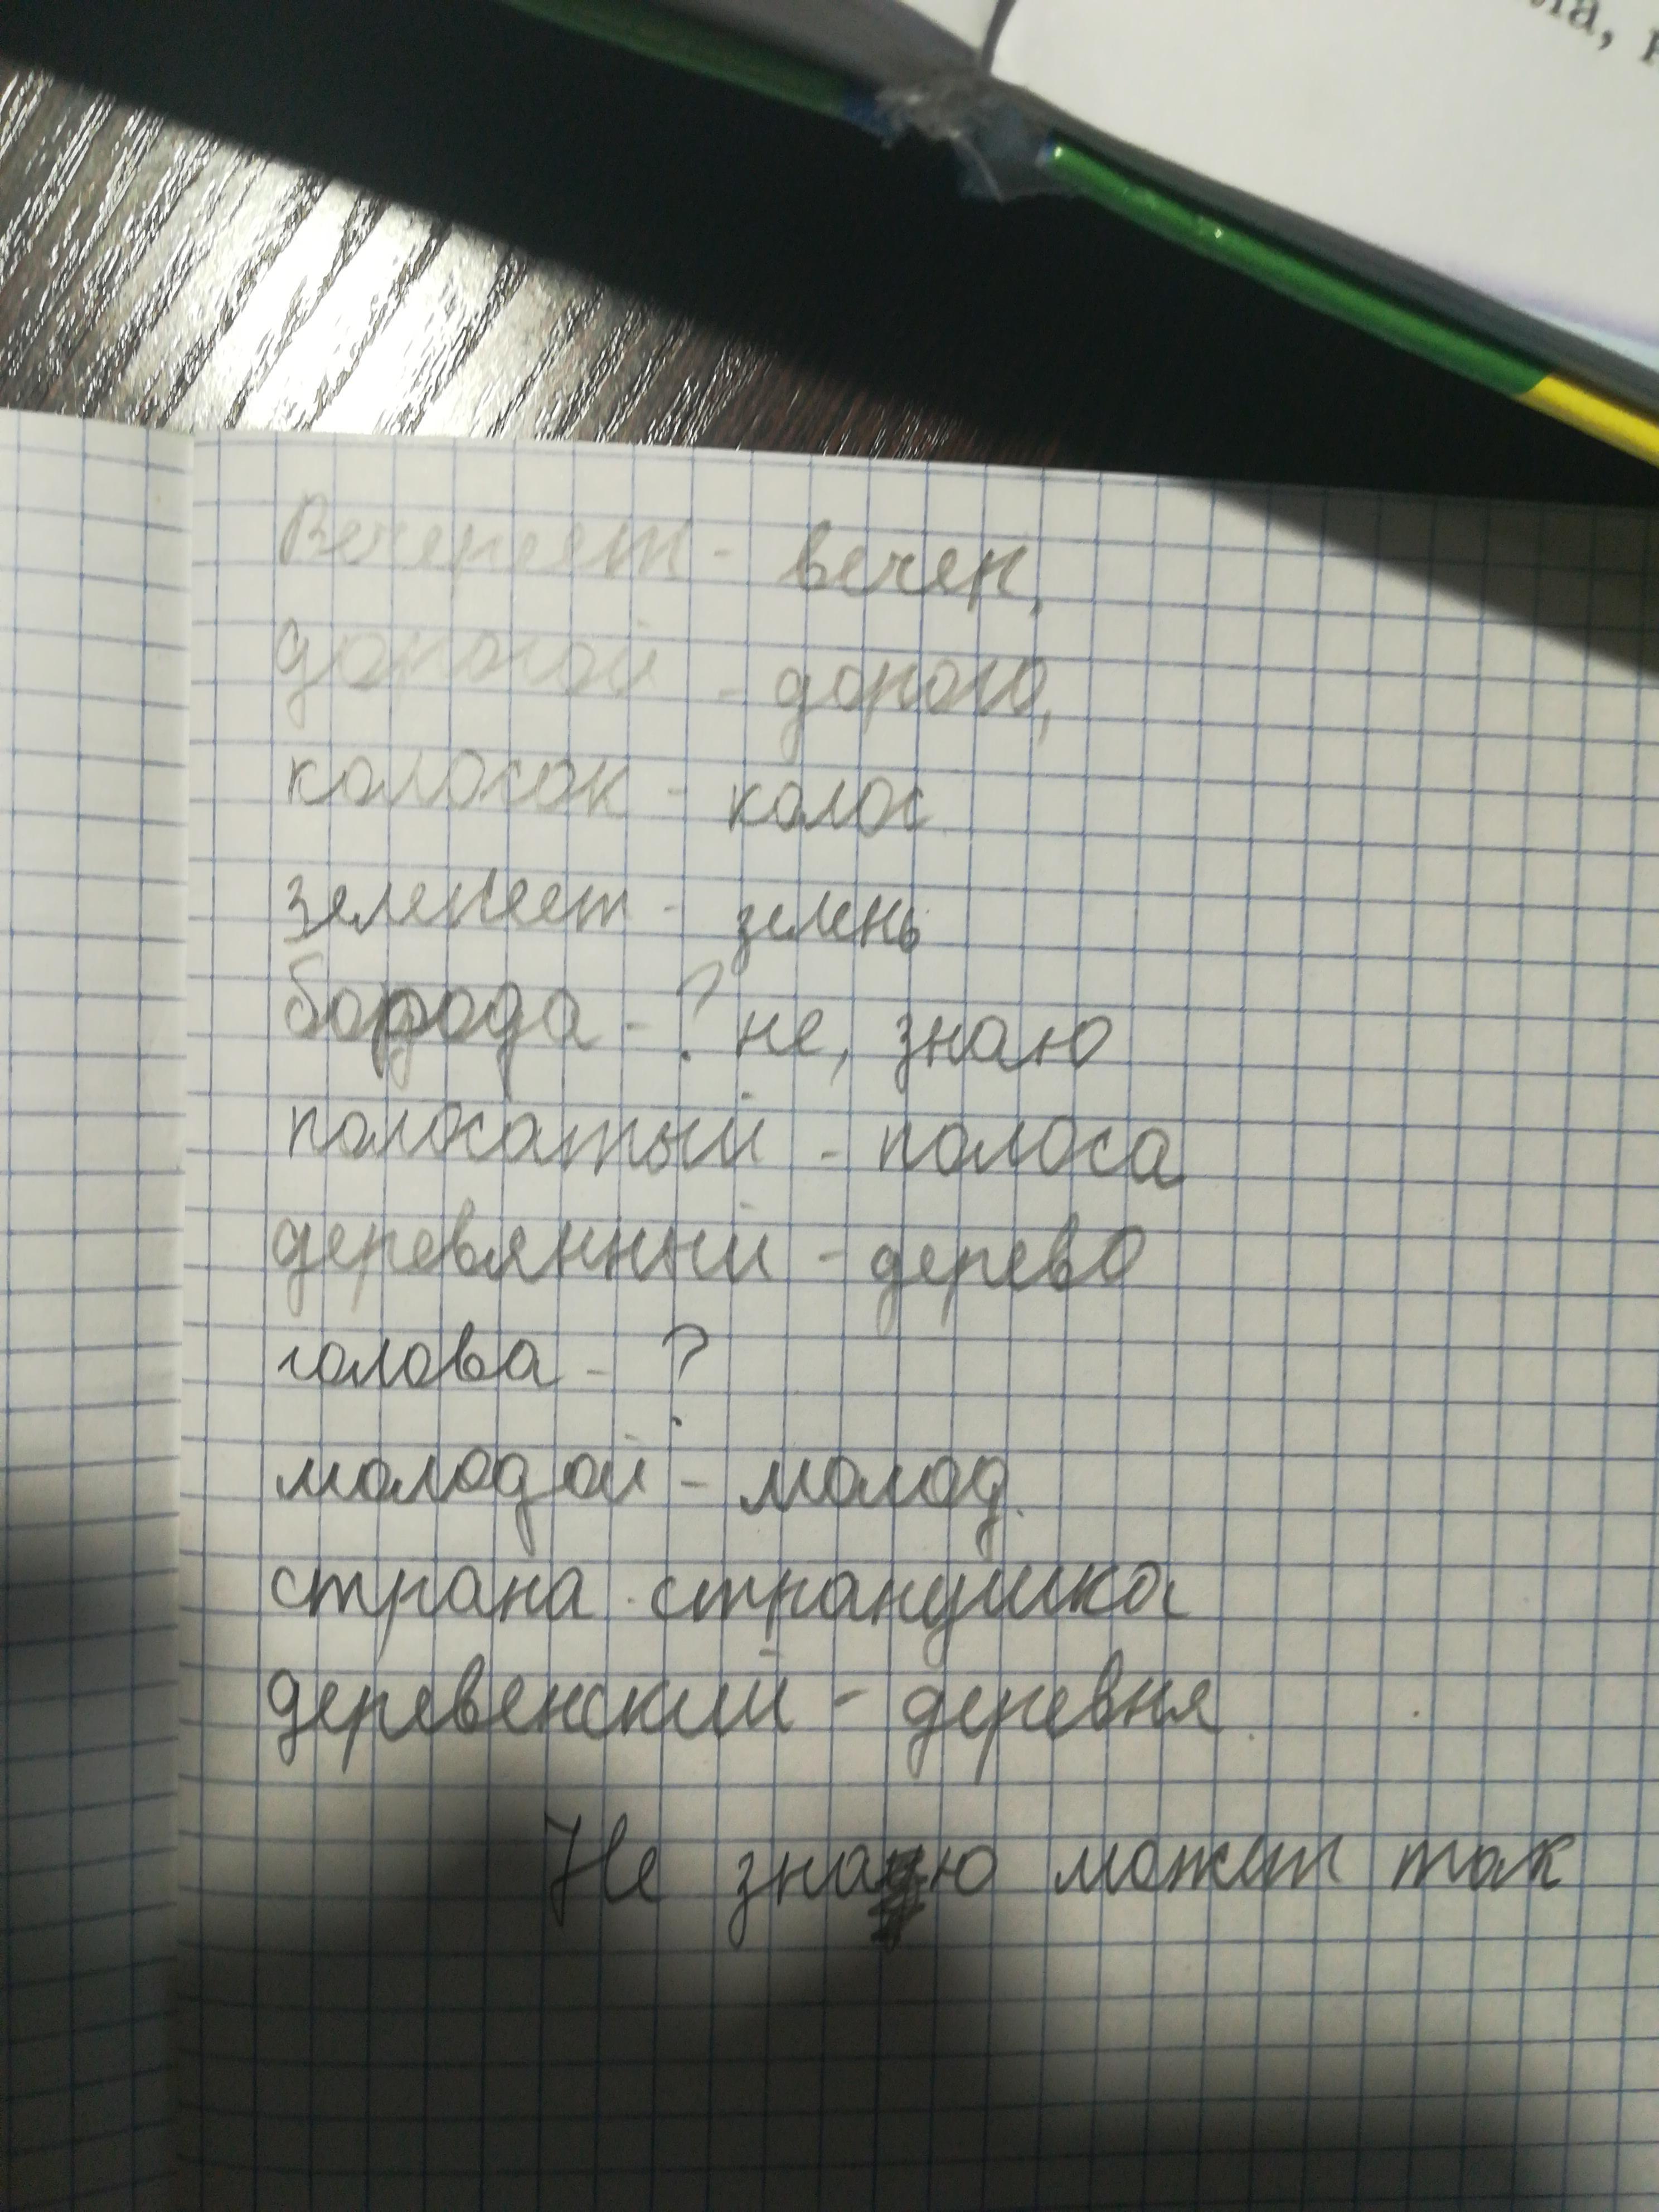 ла,
Вечереет - вечер,
дорогой - дорого,
колосок - колос
зеленеет - зелень
борода - ? не, знаю
полосатый - полоса
деревянный - дерево
голова - ?
молодой - молод.
страна - странушка
деревенский - деревня.
Не знаю может так